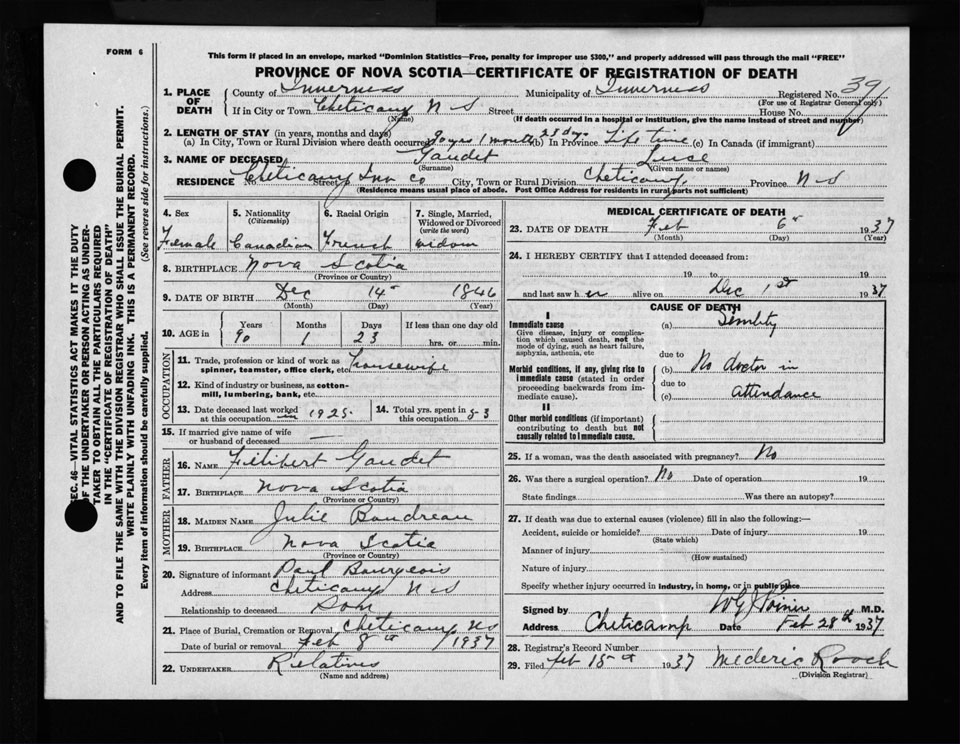 FORM 6
This form if placed in an envelope, marked "Dominion Statistics—Free, penalty for improper use $300," and properly addressed will pass through the mail "FREE"
PROVINCE OF NOVA SCOTIA—CERTIFICATE OF REGISTRATION OF DEATH
1. PLACE OF DEATH
County of Inverness Municipality of Inverness Registered No. 391
(For use of Registrar General only)
If in City or Town Cheticamp N S Street House No.
(Name) (If death occurred in a hospital or institution, give the name instead of street and number)
2. LENGTH OF STAY (in years, months and days)
(a) In City, Town or Rural Division where death occurred 90 yrs 1 month 23 days (b) In Province Life time (c) In Canada (if immigrant)
3. NAME OF DECEASED Gaudet Luce
(Surname) (Given name or names)
RESIDENCE No. Cheticamp Street Inv Co City, Town or Rural Division Cheticamp Province N S
(Residence means usual place of abode. Post Office Address for residents in rural parts not sufficient)
4. Sex
Female
5. Nationality
(Citizenship)
Canadian
6. Racial Origin
French
7. Single, Married, Widowed or Divorced
(write the word)
widow
8. BIRTHPLACE Nova Scotia
(Province or Country)
9. DATE OF BIRTH Dec 14 1846
(Month) (Day) (Year)
10. AGE in
Years Months Days If less than one day old
90 1 23 hrs. or min.
OCCUPATION
11. Trade, profession or kind of work as spinner, teamster, office clerk, etc. housewife
12. Kind of industry or business, as cotton-mill, lumbering, bank, etc.
13. Date deceased last worked at this occupation in 1925
14. Total yrs. spent in this occupation 53
15. If married give name of wife or husband of deceased —
FATHER
16. NAME Filibert Gaudet
17. BIRTHPLACE Nova Scotia
(Province or Country)
MOTHER
18. MAIDEN NAME Julie Boudreau
19. BIRTHPLACE Nova Scotia
(Province or Country)
20. Signature of informant Paul Bourgeois
Address Cheticamp N S
Relationship to deceased Son
21. Place of Burial, Cremation or Removal Cheticamp N S
Date of burial or removal Feb 8th 1937
22. UNDERTAKER Relatives
(Name and address)
MEDICAL CERTIFICATE OF DEATH
23. DATE OF DEATH Feb 6 1937
(Month) (Day) (Year)
24. I HEREBY CERTIFY that I attended deceased from:
19 to 19
and last saw her alive on Dec 1st 1937
CAUSE OF DEATH
I
Immediate cause
Give disease, injury or complication which caused death, not the mode of dying, such as heart failure, asphyxia, asthenia, etc
(a) Senility
due to
Morbid conditions, if any, giving rise to immediate cause (stated in order proceeding backwards from immediate cause).
(b) No doctor in
due to
(c) attendance
II
Other morbid conditions (if important) contributing to death but not causally related to Immediate cause.
25. If a woman, was the death associated with pregnancy? No
26. Was there a surgical operation? No Date of operation 19
State findings Was there an autopsy?
27. If death was due to external causes (violence) fill in also the following:—
Accident, suicide or homicide? Date of injury 19
(State which)
Manner of injury
(How sustained)
Nature of injury
Specify whether injury occurred in industry, in home, or in public place
Signed by M.D.
Address Cheticamp Date Feb 28th 1937
28. Registrar's Record Number
29. Filed Feb 15th 1937 Mederic Roach
(Division Registrar)
SEC. 46—VITAL STATISTICS ACT MAKES IT THE DUTY
OF THE UNDERTAKER OR PERSON ACTING AS UNDER-
TAKER TO OBTAIN ALL THE PARTICULARS REQUIRED
IN THE "CERTIFICATE OF REGISTRATION OF DEATH"
AND TO FILE THE SAME WITH THE DIVISION REGISTRAR WHO SHALL ISSUE THE BURIAL PERMIT.
WRITE PLAINLY WITH UNFADING INK. THIS IS A PERMANENT RECORD.
Every item of information should be carefully supplied. (See reverse side for instructions.)